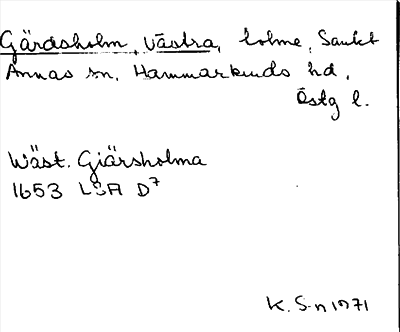 Gärdsholm, Västra, holme, Sankt
Annas sn, Hammarkinds hd,
Östg l.
Wäst. Giärsholma
1653 LSA D7
K. S-n 1971